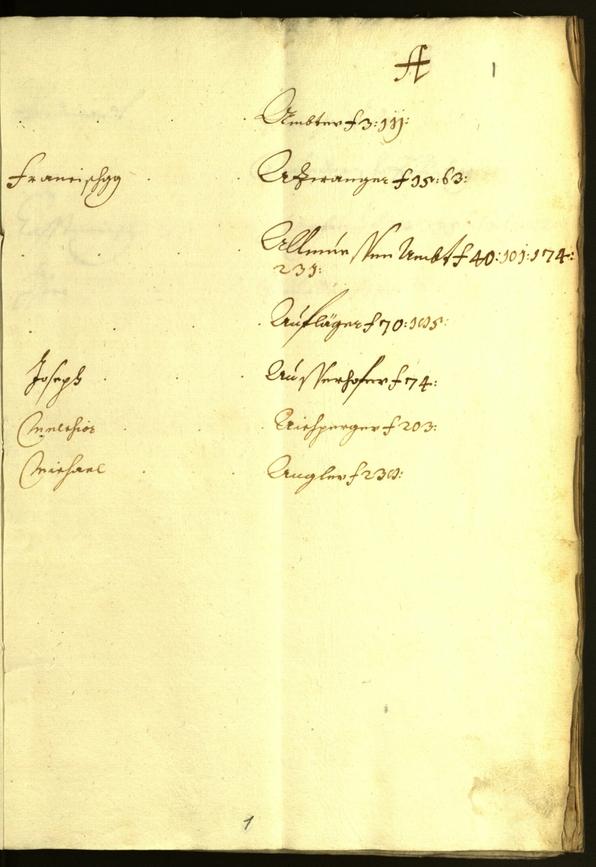 A 1
Ambter f 3: 111:
Francischg Azwanger f 15: 63:
Allmuessen Ambt f 40: 101: 174:
231:
Aufläger f 70: 105:
Joseph Ausserhofer f 74:
Melchior Aichperger f 203:
Michael Augler f 230:
1